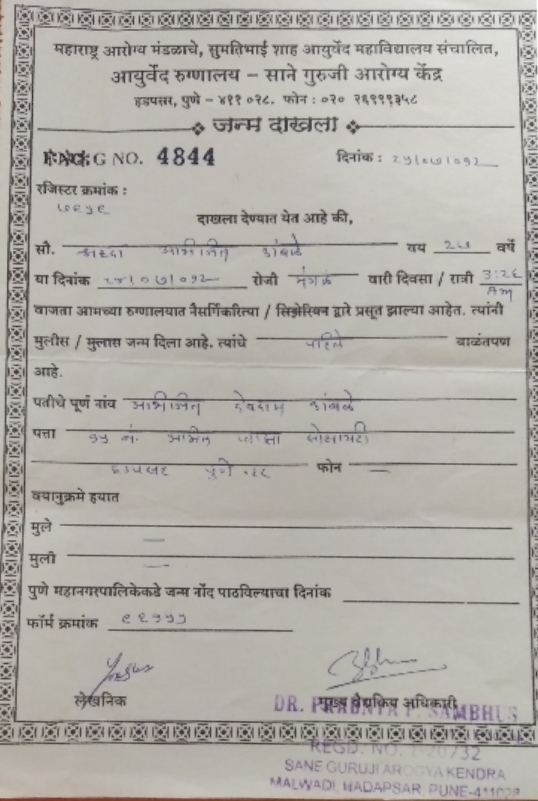 महाराष्ट्र आरोग्य मंडळाचे, सुमतिभाई शाह आयुर्वेद महाविद्यालय संचालित,
आयुर्वेद रुग्णालय – साने गुरुजी आरोग्य केंद्र
हडपसर, पुणे – ४११ ०२८. फोन : ०२० २६९९९३५८
जन्म दाखला
G NO. 4844 दिनांक :
रजिस्टर क्रमांक :
दाखला देण्यात येत आहे की,
सौ. अभिजित कांबळे वय वर्षे
या दिनांक रोजी मंगळ वारी दिवसा / रात्री 3:26 AM
वाजता आमच्या रुग्णालयात नैसर्गिकरित्या / सिझेरियन द्वारे प्रसूत झाल्या आहेत. त्यांनी
मुलीस / मुलास जन्म दिला आहे. त्यांचे पहिले बाळंतपण
आहे.
पतीचे पूर्ण नांव अभिजित देवदास कांबळे
पत्ता नं. सोसायटी
हडपसर पुणे २८ फोन —
वयानुक्रमे हयात
मुले —
मुली —
पुणे महानगरपालिकेकडे जन्म नोंद पाठविल्याचा दिनांक
फॉर्म क्रमांक
लेखनिक मुख्य वैद्यकिय अधिकारी
DR. PRADNYA P. SAMBHUS
REGD. NO. I-20732
SANE GURUJI AROGYA KENDRA
MALWADI, HADAPSAR, PUNE-411028